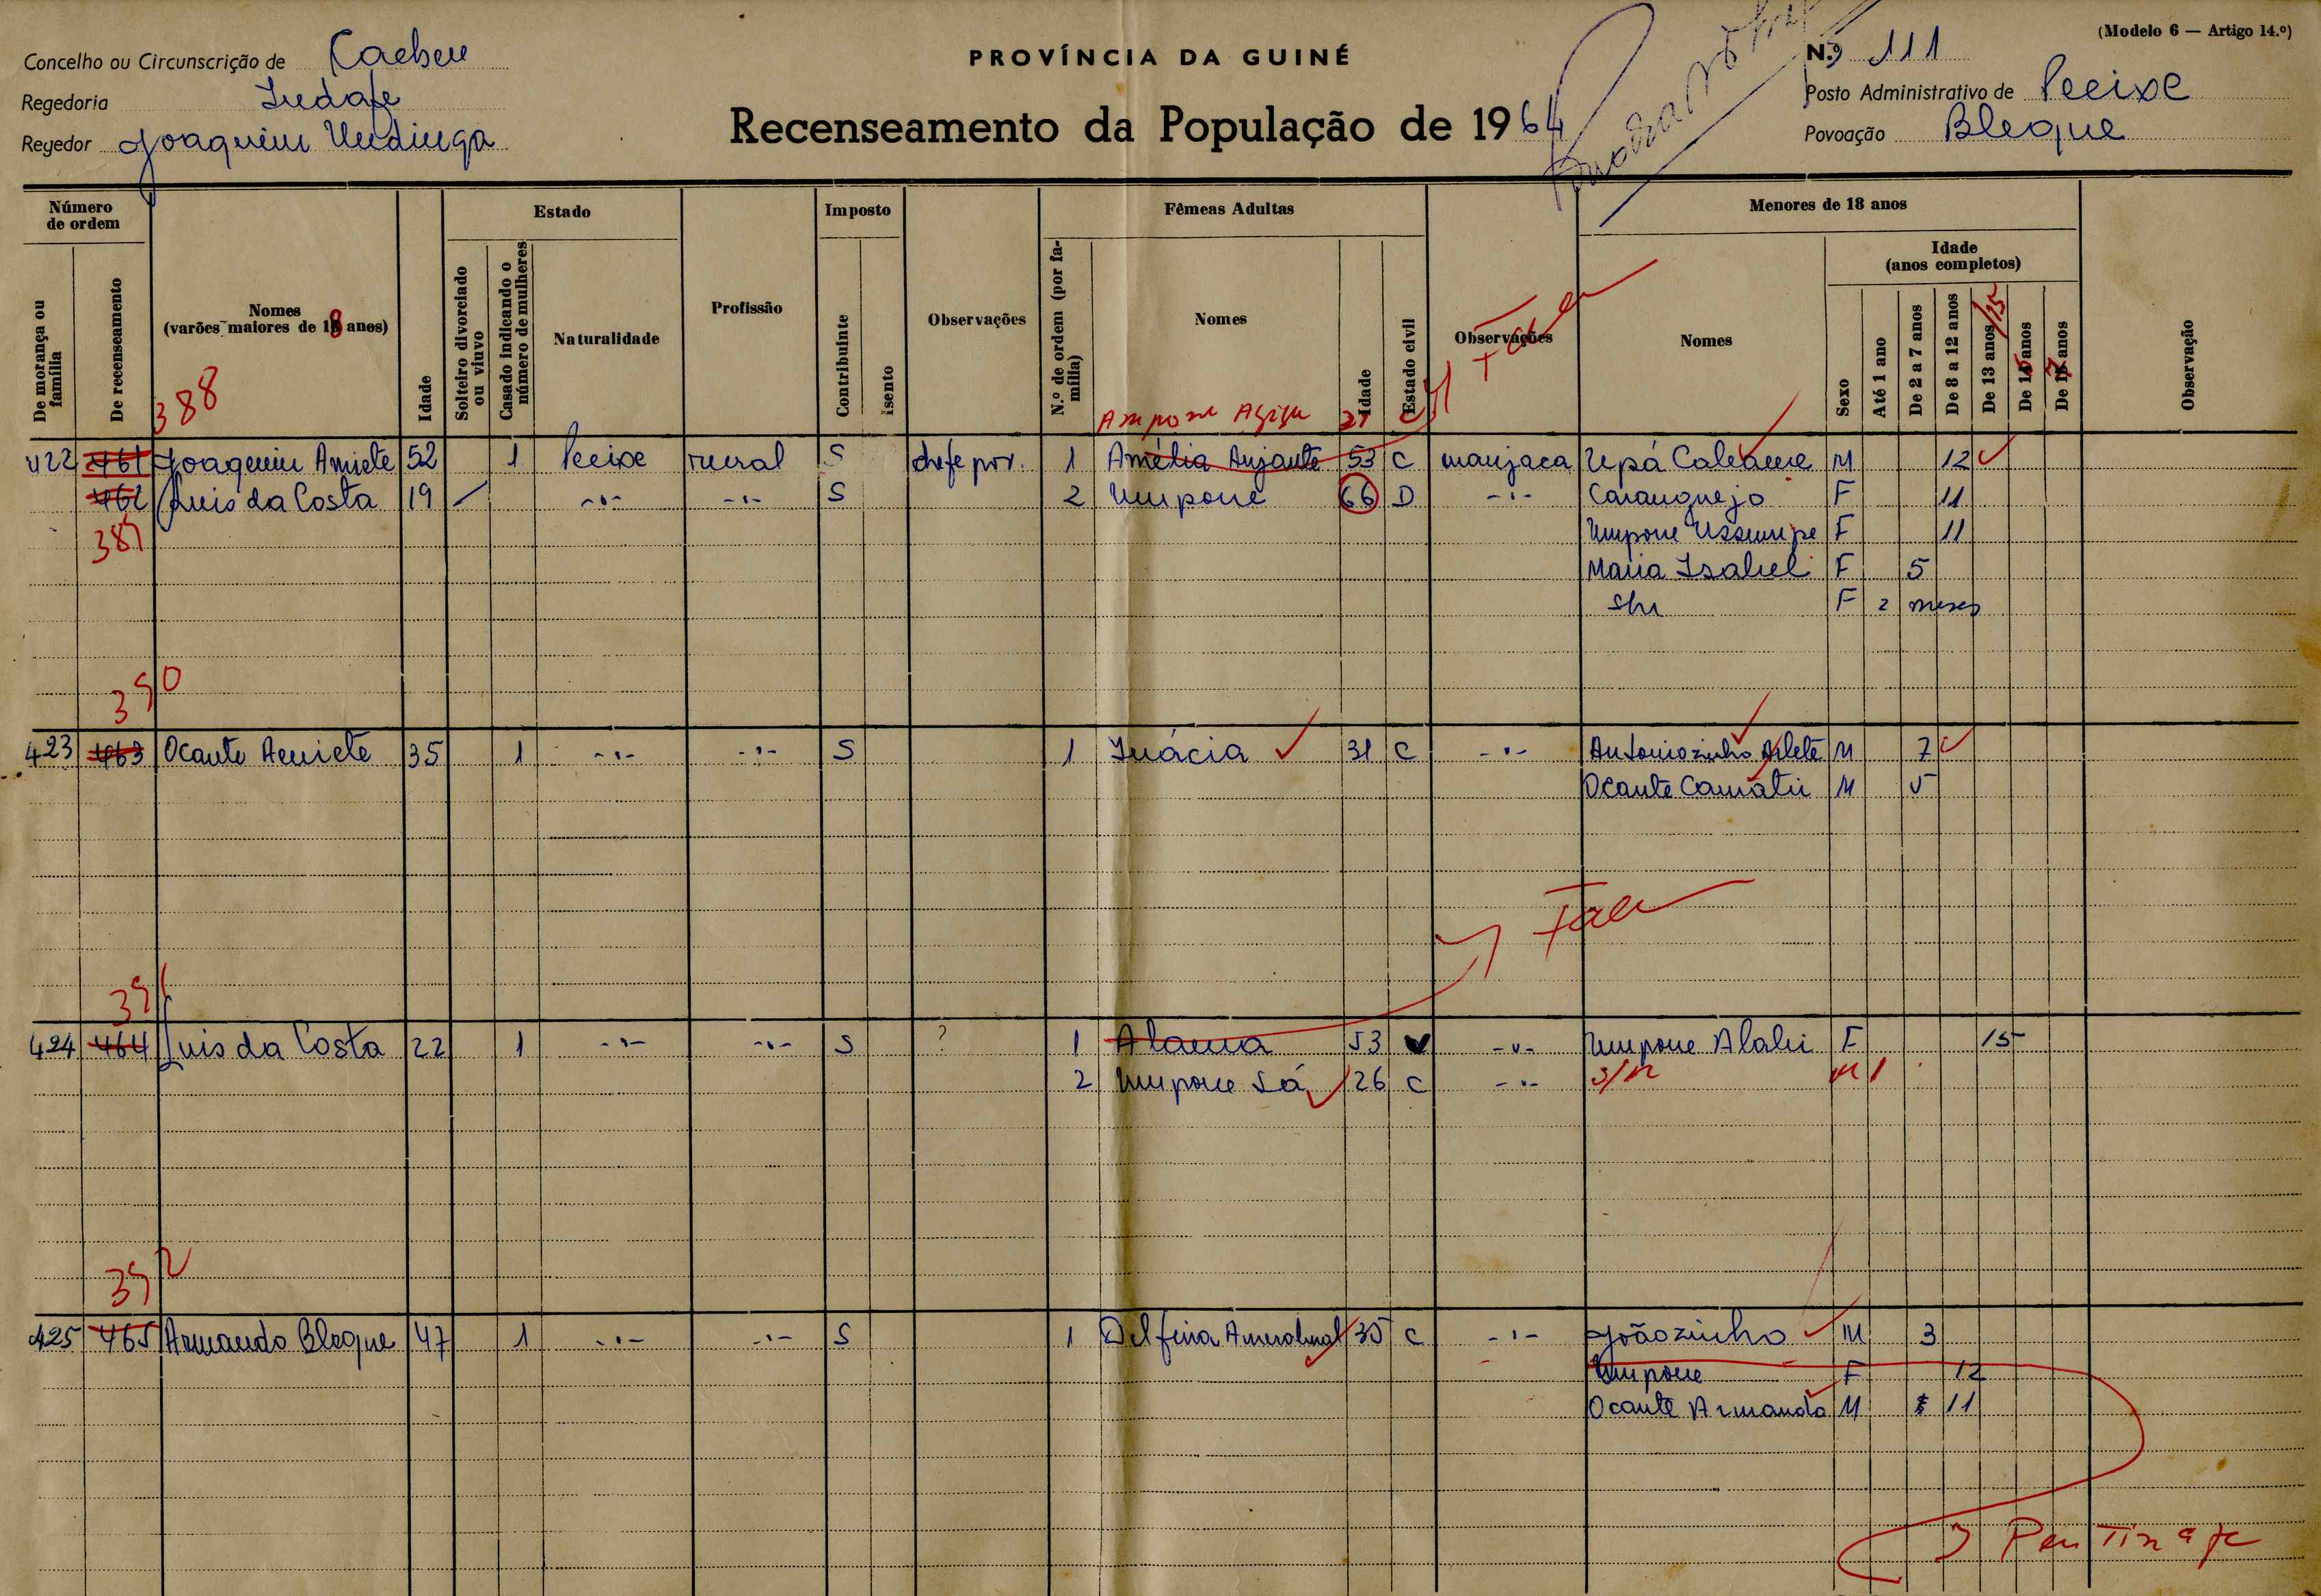 (Modelo 6 — Artigo 14.º)
Concelho ou Circunscrição de Caebeu
PROVÍNCIA DA GUINÉ
N.º 111
Regedoria
Posto Administrativo de Pecixe
Recenseamento da População de 1964
Regedor Joaquim
Povoação Bleque
Número de ordem
De morança ou família
De recenseamento
Nomes (varões maiores de 18 anos)
Idade
Estado
Solteiro divorciado ou viuvo
Casado indicando o número de mulheres
Naturalidade
Profissão
Imposto
Contribuinte
Isento
Observações
Fêmeas Adultas
N.º de ordem (por família)
Nomes
Idade
Estado civil
Observações
Menores de 18 anos
Nomes
Sexo
Idade (anos completos)
Até 1 ano
De 2 a 7 anos
De 8 a 12 anos
De 13 anos 15
De 15 anos
De 17 anos
Observação
388
Ampone 27 C
422 461 Joaquim Amiete 52 1 Pecixe rural S chefe pov. 1 Amélia Anjante 53 C manjaca Upá M 12
462 Luis da Costa 19 / -"- -"- S 2 Umpone 66 D -"- Caranguejo F 11
389 Umpone F 11
Maria Isabel F 5
S/n F 2 meses
390
423 463 Ocante Amiete 35 1 -"- -"- S 1 Inácia 31 C -"- Antoniozinho Arlete M 7
Ocante Camatii M 5
391
424 464 Luis da Costa 22 1 -"- -"- S ? 1 Alama 53 -"- Umpone Alabi F 15
2 Umpone Sá 26 C -"- S/n M 1
392
425 465 Armando Bleque 47 1 -"- -"- S 1 Delfina 35 C -"- Joãozinho M 3
Umpone F 12
Ocante Armando M 11